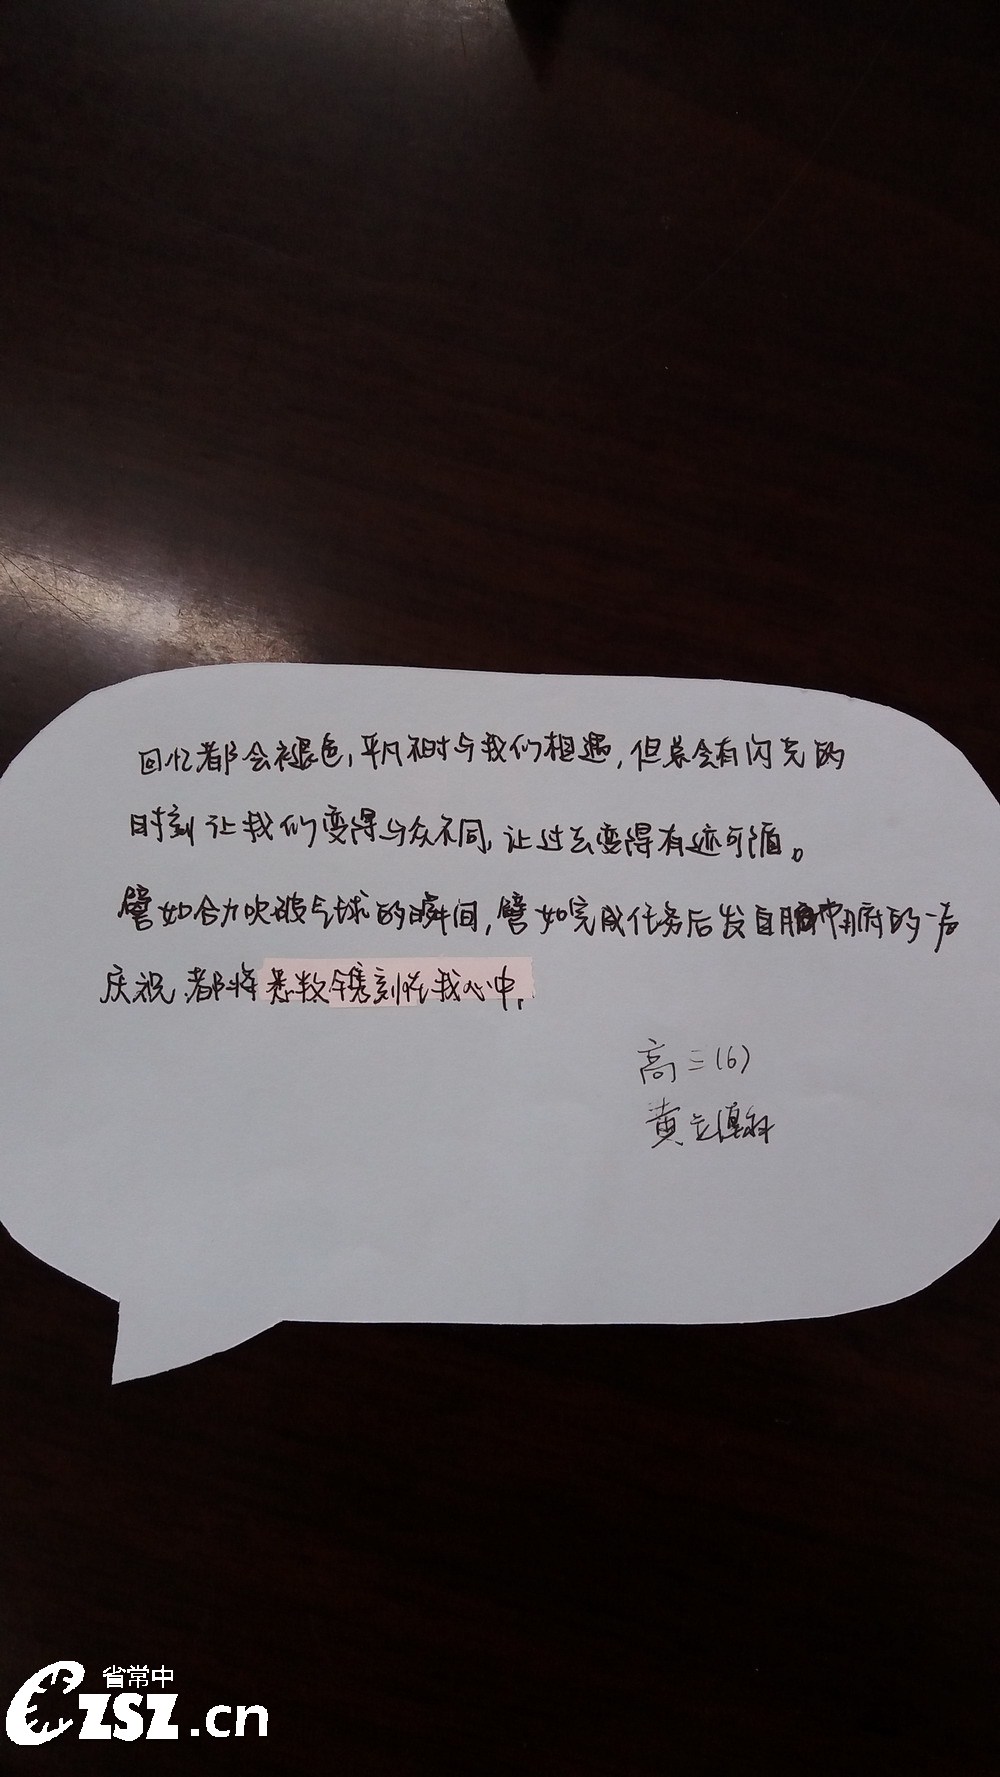 回忆都会褪色,平凡不时与我们相遇,但总会有闪光的
时刻让我们变得与众不同,让过去变得有迹可循。
譬如合力吹破气球的瞬间,譬如完成任务后发自肺腑的一声
庆祝,都将悉数镌刻在我心中.
高三(6)
黄
省常中
CZSZ.cn